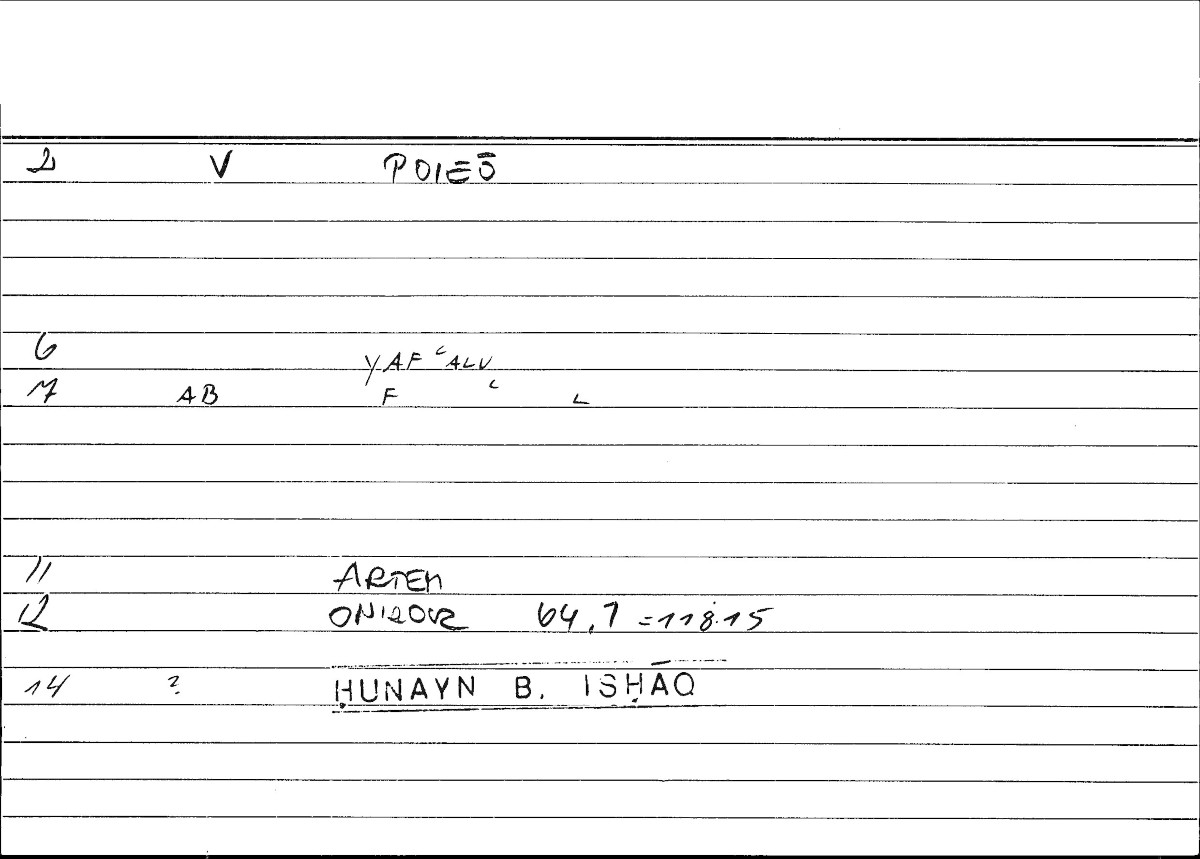 2 V POIEŌ
6 YAFʿALU
7 AB F ʿ L
11 ARTEM
12 ONIROCR 64,7 =118.15
14 ? ḤUNAYN B. ISḤĀQ